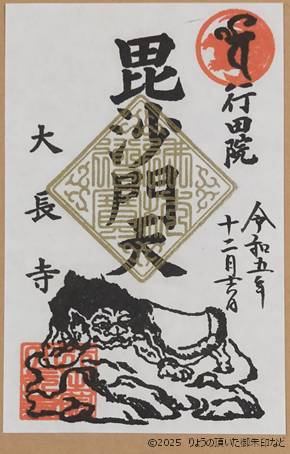 行田院
令和五年
十二月廿六日
毘沙門天
大長寺
©2025 りょうの頂いた御朱印など